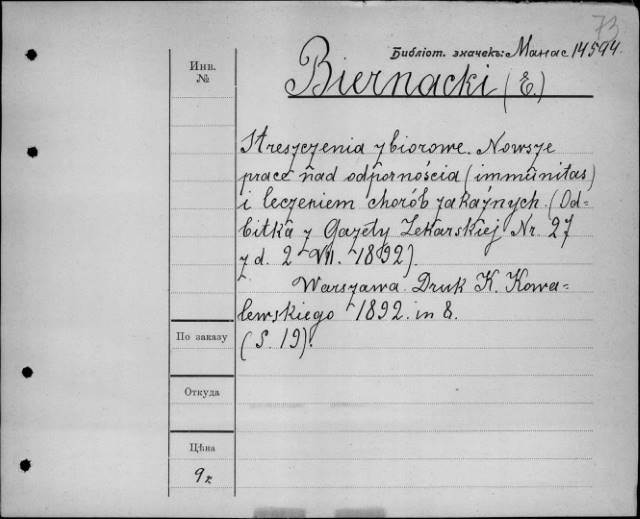 73
Библіот. значекъ: Манас 14594.
Инв. №
Biernacki (E.)
Streszczenia zbiorowe. Nowsze
prace nad odpornościa (immunitas)
i leczeniem chorób zakaźnych. (Od-
bitka z Gazety Lekarskiej Nr. 27
z d. 2 VII. 1892).
Warszawa. Druk K. Kowa-
lewskiego 1892. in 8.
(S. 19).
По заказу
Откуда
Цѣна